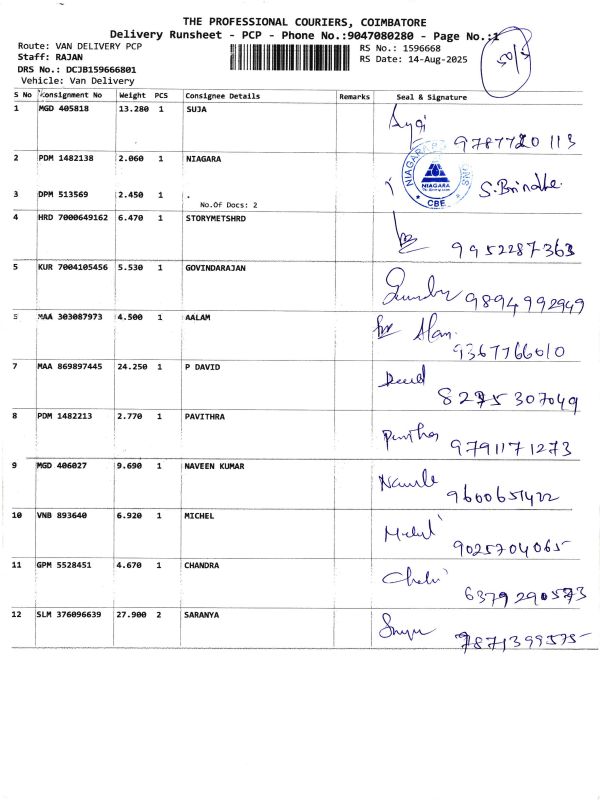 THE PROFESSIONAL COURIERS, COIMBATORE
Delivery Runsheet - PCP - Phone No.:9047080280 - Page No.:1
Route: VAN DELIVERY PCP
RS No.: 1596668
Staff: RAJAN
RS Date: 14-Aug-2025
DRS No.: DCJB159666801
Vehicle: Van Delivery
S No Consignment No Weight PCS Consignee Details Remarks Seal & Signature
1 MGD 405818 13.280 1 SUJA
9787720113
2 PDM 1482138 2.060 1 NIAGARA
NIAGARA
NIAGARA
CBE
3 DPM 513569 2.450 1 .
S. Brindha
No.Of Docs: 2
4 HRD 7000649162 6.470 1 STORYMETSHRD
9952287363
5 KUR 7004105456 5.530 1 GOVINDARAJAN
9894992949
6 MAA 303087973 4.500 1 AALAM
Alam.
9367766010
7 MAA 869897445 24.250 1 P DAVID
David
8275307049
8 PDM 1482213 2.770 1 PAVITHRA
9791171273
9 MGD 406027 9.690 1 NAVEEN KUMAR
9600651422
10 VNB 893640 6.920 1 MICHEL
Michel
9025704065
11 GPM 5528451 4.670 1 CHANDRA
6379290573
12 SLM 376096639 27.900 2 SARANYA
7871399575